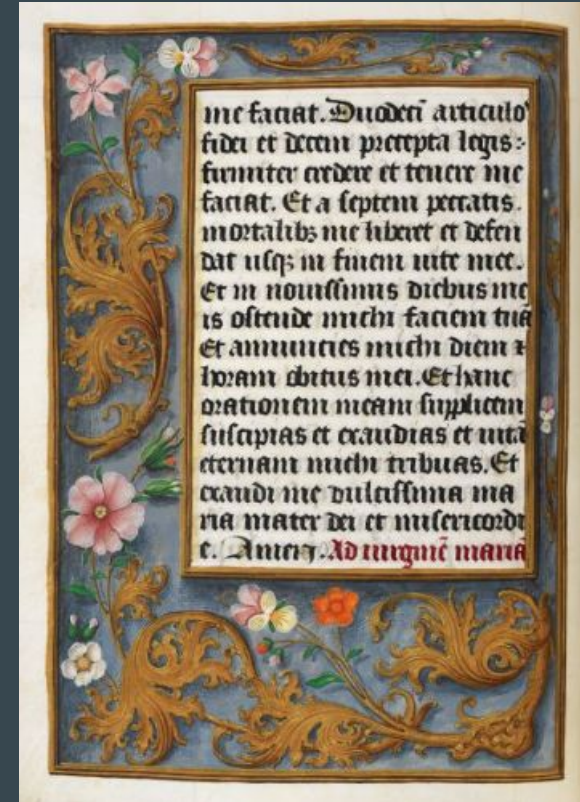 me faciat. Duodecī articulo
fidei et decem precepta legis :
firmiter credere et tenere me
faciat. Et a septem peccatis.
mortalibꝫ me liberet et defen
dat usqꝫ in finem uite mee.
Et in nouissimis diebus me
is ostende michi faciem tuā
Et annuncies michi diem ⁊
horam obitus mei. Et hanc
orationem meam supplicem
suscipias et exaudias et uitā
eternam michi tribuas. Et
exaudi me dulcissima ma
ria mater dei et misericordi
e. Amen. Ad uirginē mariā